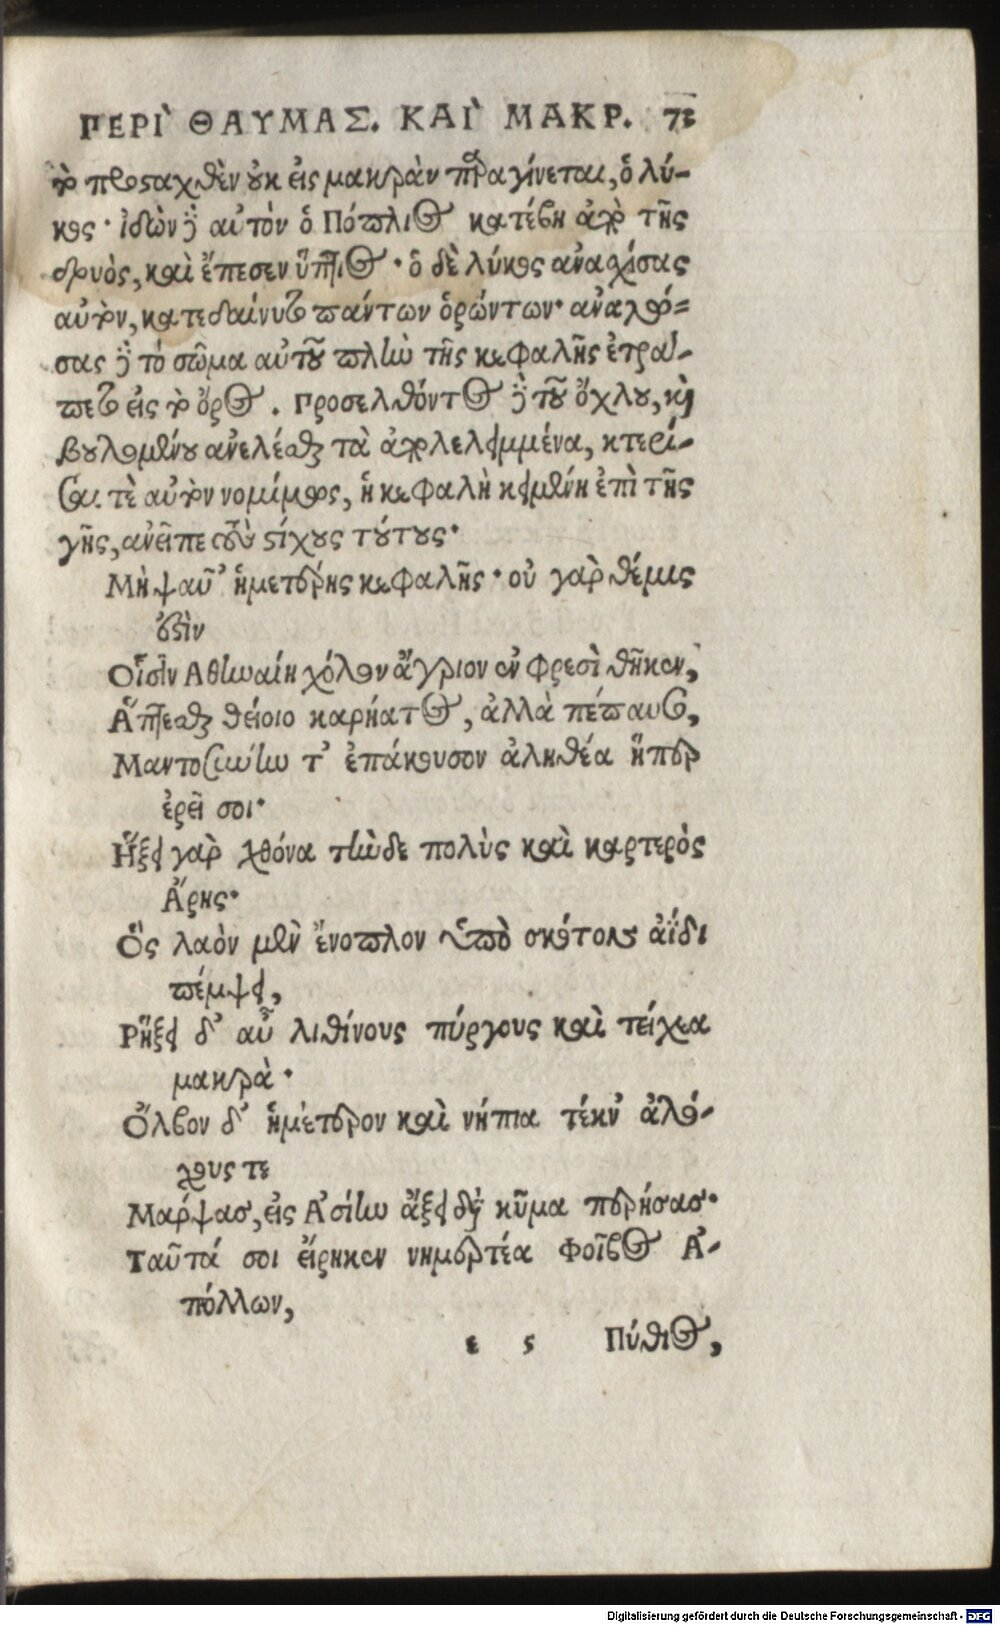 ΠΕΡΙ ΘΑΥΜΑΣ. ΚΑΙ ΜΑΚΡ. 73
τὸ προσαχθὲν οὐκ εἰς μακρὰν παραγίνεται, ὁ λύ-
κος· ἰδὼν δὲ αὐτὸν ὁ Πόπλιος κατέβη ἀπὸ τῆς
δρυὸς, καὶ ἔπεσεν ὕπτιος· ὁ δὲ λύκος ἀναχίσας
αὐτὸν, κατεδαίνυτο πάντων ὁρώντων· ἀναλώ-
σας δὲ τὸ σῶμα αὐτοῦ πλὴν τῆς κεφαλῆς ἐτρά-
πετο εἰς τὸ ὄρος. Προσελθόντος δὲ τοῦ ὄχλου, καὶ
βουλομένου ἀνελέσθαι τὰ ἀπολελειμμένα, κτερί-
σαι τὲ αὐτὸν νομίμως, ἡ κεφαλὴ κειμένη ἐπὶ τῆς
γῆς, ἀνεῖπε στίχους τούτους·
Μὴ ψαῦ' ἡμετέρης κεφαλῆς· οὐ γὰρ θέμις
ἐστὶν
Οἷσιν Αθηναίη χόλον ἄγριον ἐν φρεσὶ θῆκεν,
Ἅπτεσθαι θείοιο καρήατος, ἀλλὰ πέπαυσο,
Μαντοσύνην τ' ἐπάκουσον ἀληθέα ἥπερ
ἐρεῖ σοι·
Ἥξει γὰρ χθόνα τὴνδε πολὺς καὶ καρτερὸς
Ἄρης·
Ὃς λαὸν μὲν ἔνοπλον ὑπὸ σκότους ἀΐδι
πέμψει,
Ρήξει δ' αὖ λιθίνους πύργους καὶ τείχεα
μακρὰ·
Ὄλβον δ' ἡμέτερον καὶ νήπια τέκν' ἀλό-
χους τε
Μάρψας, εἰς Ἀσίην ἄξει διὰ κῦμα περήσας·
Ταῦτά σοι εἴρηκεν νημερτέα Φοῖβος Ἀ-
πόλλων,
ε 5 Πύθιος,
Digitalisierung gefördert durch die Deutsche Forschungsgemeinschaft - DFG